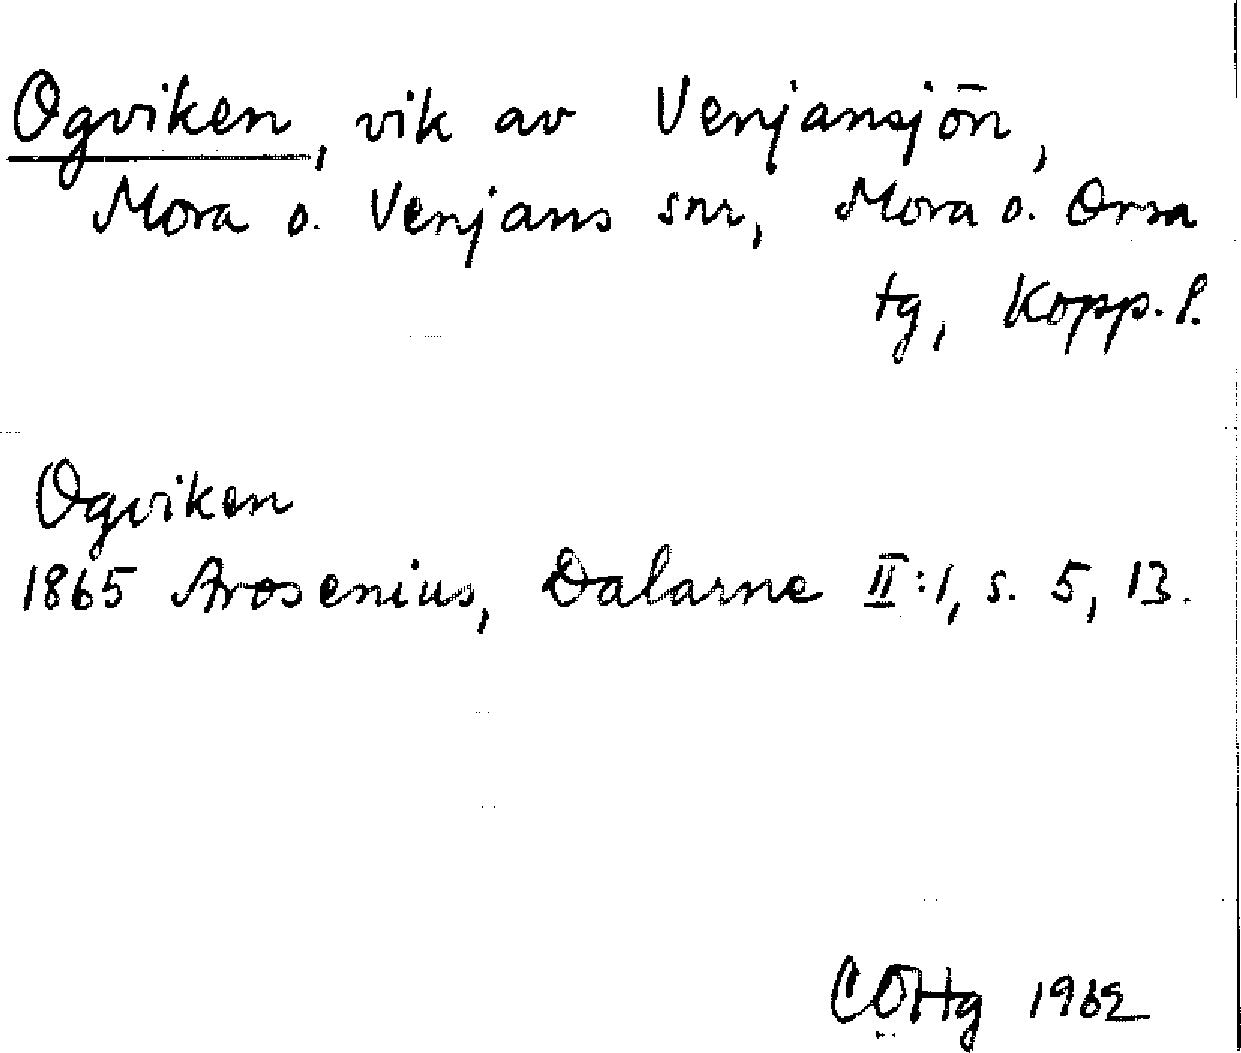 Ogviken, vik av Venjansjön,
Mora o. Venjans snr, Mora o. Orsa
tg, Kopp. l.
Ogviken
1865 Arosenius, Dalarne II:1, s. 5, 13.
CÖHg 1962